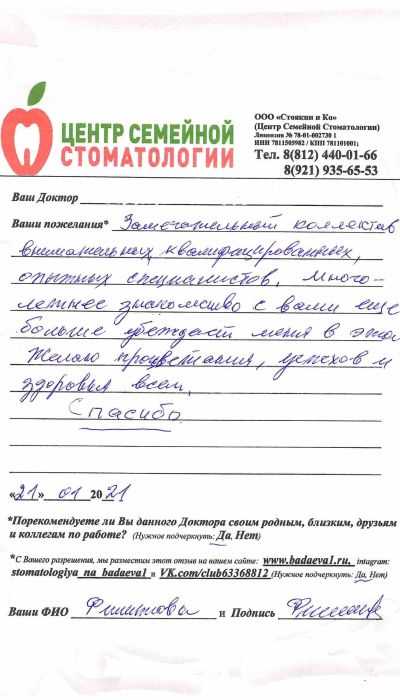 ЦЕНТР СЕМЕЙНОЙ
СТОМАТОЛОГИИ
ООО «Стоякин и Ко»
(Центр Семейной Стоматологии)
Лицензия № 78-01-002730 1
ИНН 7811505982 / КПП 781101001;
Тел. 8(812) 440-01-66
8(921) 935-65-53
Ваш Доктор
Ваши пожелания* Замечательный коллектив
внимательных квалифицированных,
опытных специалистов. Много-
летнее знакомство с вами еще
больше убеждает меня в этом
Желаю процветания, успехов и
здоровья всем.
Спасибо
«21» 01 2021
*Порекомендуете ли Вы данного Доктора своим родным, близким, друзьям
и коллегам по работе? (Нужное подчеркнуть: Да, Нет)
*С Вашего разрешения, мы разместим этот отзыв на нашем сайте: www.badaeva1.ru, intagram:
stomatologiya_na_badaeva1 и VK.com/club63368812 (Нужное подчеркнуть: Да, Нет)
Ваши ФИО и Подпись